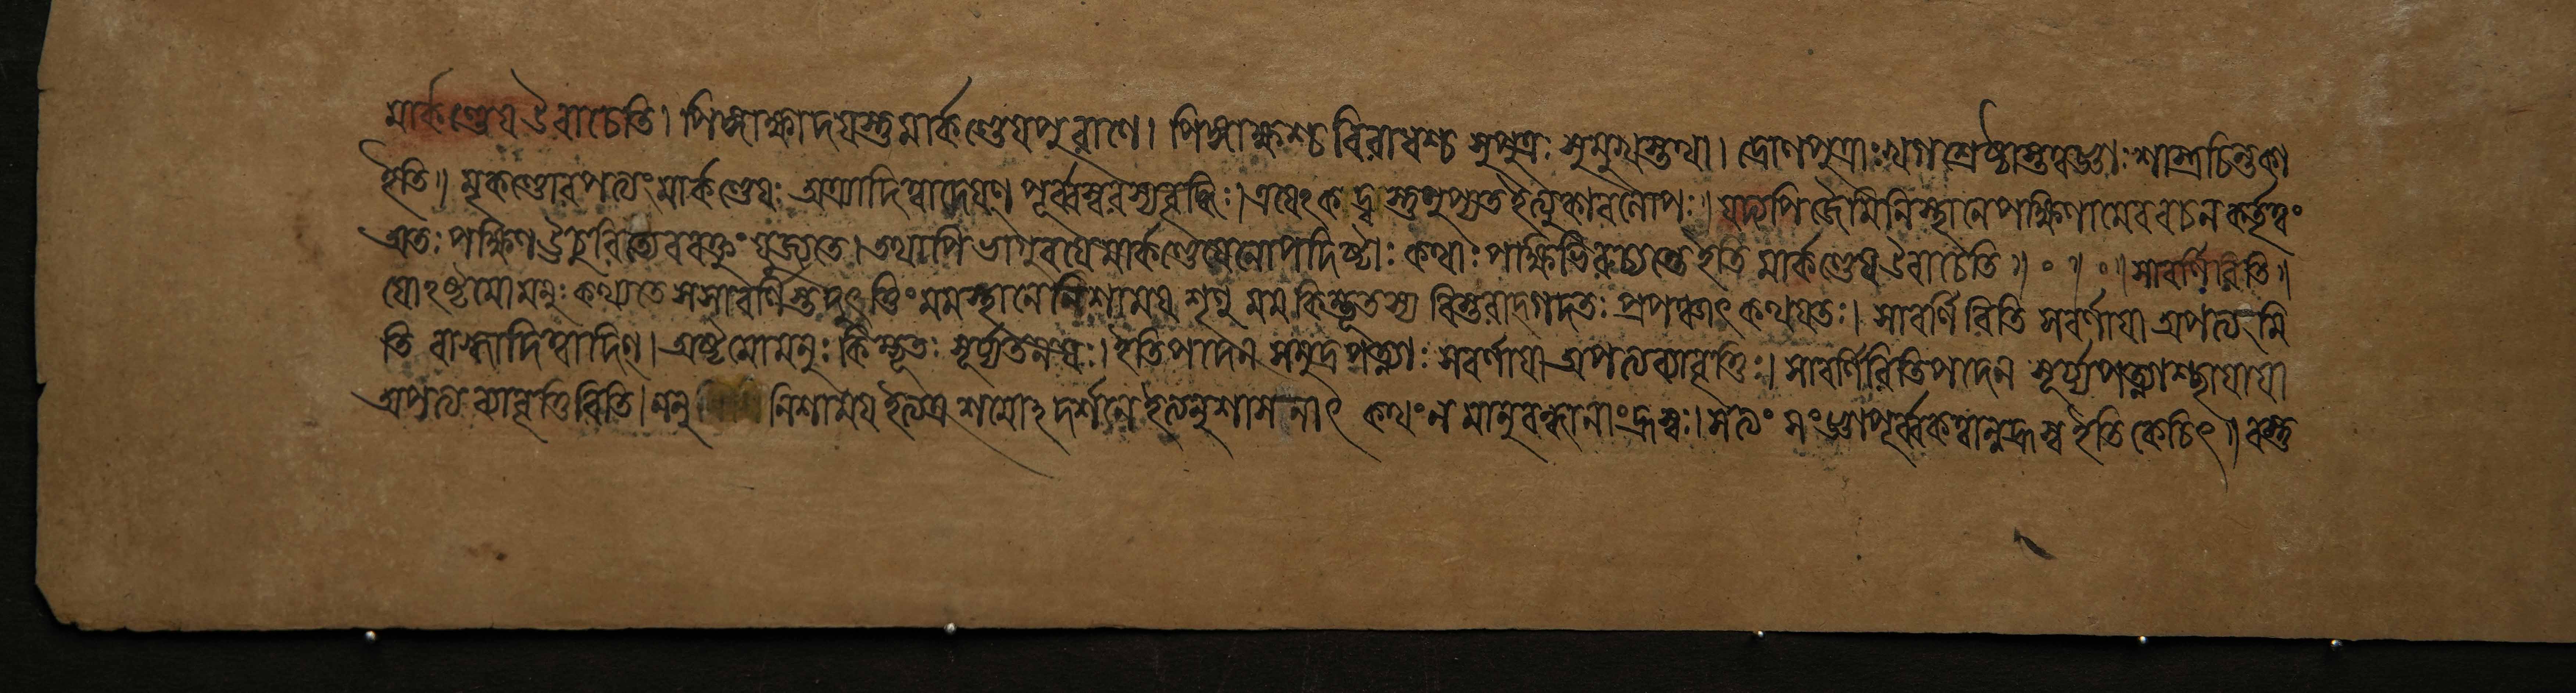 মার্কণ্ডেয উবাচেতি। পিঙ্গাক্ষাদযস্তু মার্কণ্ডেযপুরাণে। পিঙ্গাক্ষশ্চ বিরাধশ্চ সুপুত্রঃ সুমুখস্তথা। দ্রোণপুত্রাঃ খগশ্রেষ্ঠাস্তত্বজ্ঞাঃ শাস্ত্রচিন্তকা
ইতি॥ মৃকণ্ডোরপত্যং মার্কণ্ডেযঃ অত্র্যাদিত্বাদেযণ পূর্ব্বস্বরস্য বৃদ্ধিঃ। ইত্যুকারলোপঃ। যদ্যপি জৈমিনিস্থানে পক্ষিণামেব বচনকর্তৃত্বং
অতঃ পক্ষিণ ঊচুরিত্যেব বক্তুং যুজ্যতে। তথাপি ভাগুরযে মার্কণ্ডেযেনোপদিষ্টাঃ কথাঃ পক্ষিভিরুচ্যন্তে ইতি মার্কণ্ডেয উবাচেতি॥ ০ ॥ ০ ॥ সাবর্ণিরিতি॥
যোঽষ্টমো মনুঃ কথ্যতে স সাবর্ণিস্তদুৎপত্তিং মম স্থানে নিশাময শৃণু মম কিম্ভূতস্য বিস্তরাদ্গদতঃ প্রপঞ্চাৎ কথযতঃ। সাবর্ণিরিতি সবর্ণাযা অপত্যমি
তি বাহ্বাদিত্বাদিণ। অষ্টমো মনুঃ কিম্ভূতঃ সূর্য্যতনযঃ। ইতি পদেন সমুদ্রপত্ন্যাঃ সবর্ণাযা অপত্যব্যাবৃত্তিঃ। সাবর্ণিরিতিপদেন সূর্য্যপত্ন্যাশ্ছাযাযা
অপত্যব্যাবৃত্তিরিতি। ননু নিশাময ইত্যত্র শমোঽদর্শনে ইত্যনুশাসনাৎ কথং ন মানুবন্ধানাং হ্রস্বঃ। সত্যং সংজ্ঞাপূর্ব্বকত্বান্নহ্রস্ব ইতি কেচিৎ॥ বস্তু